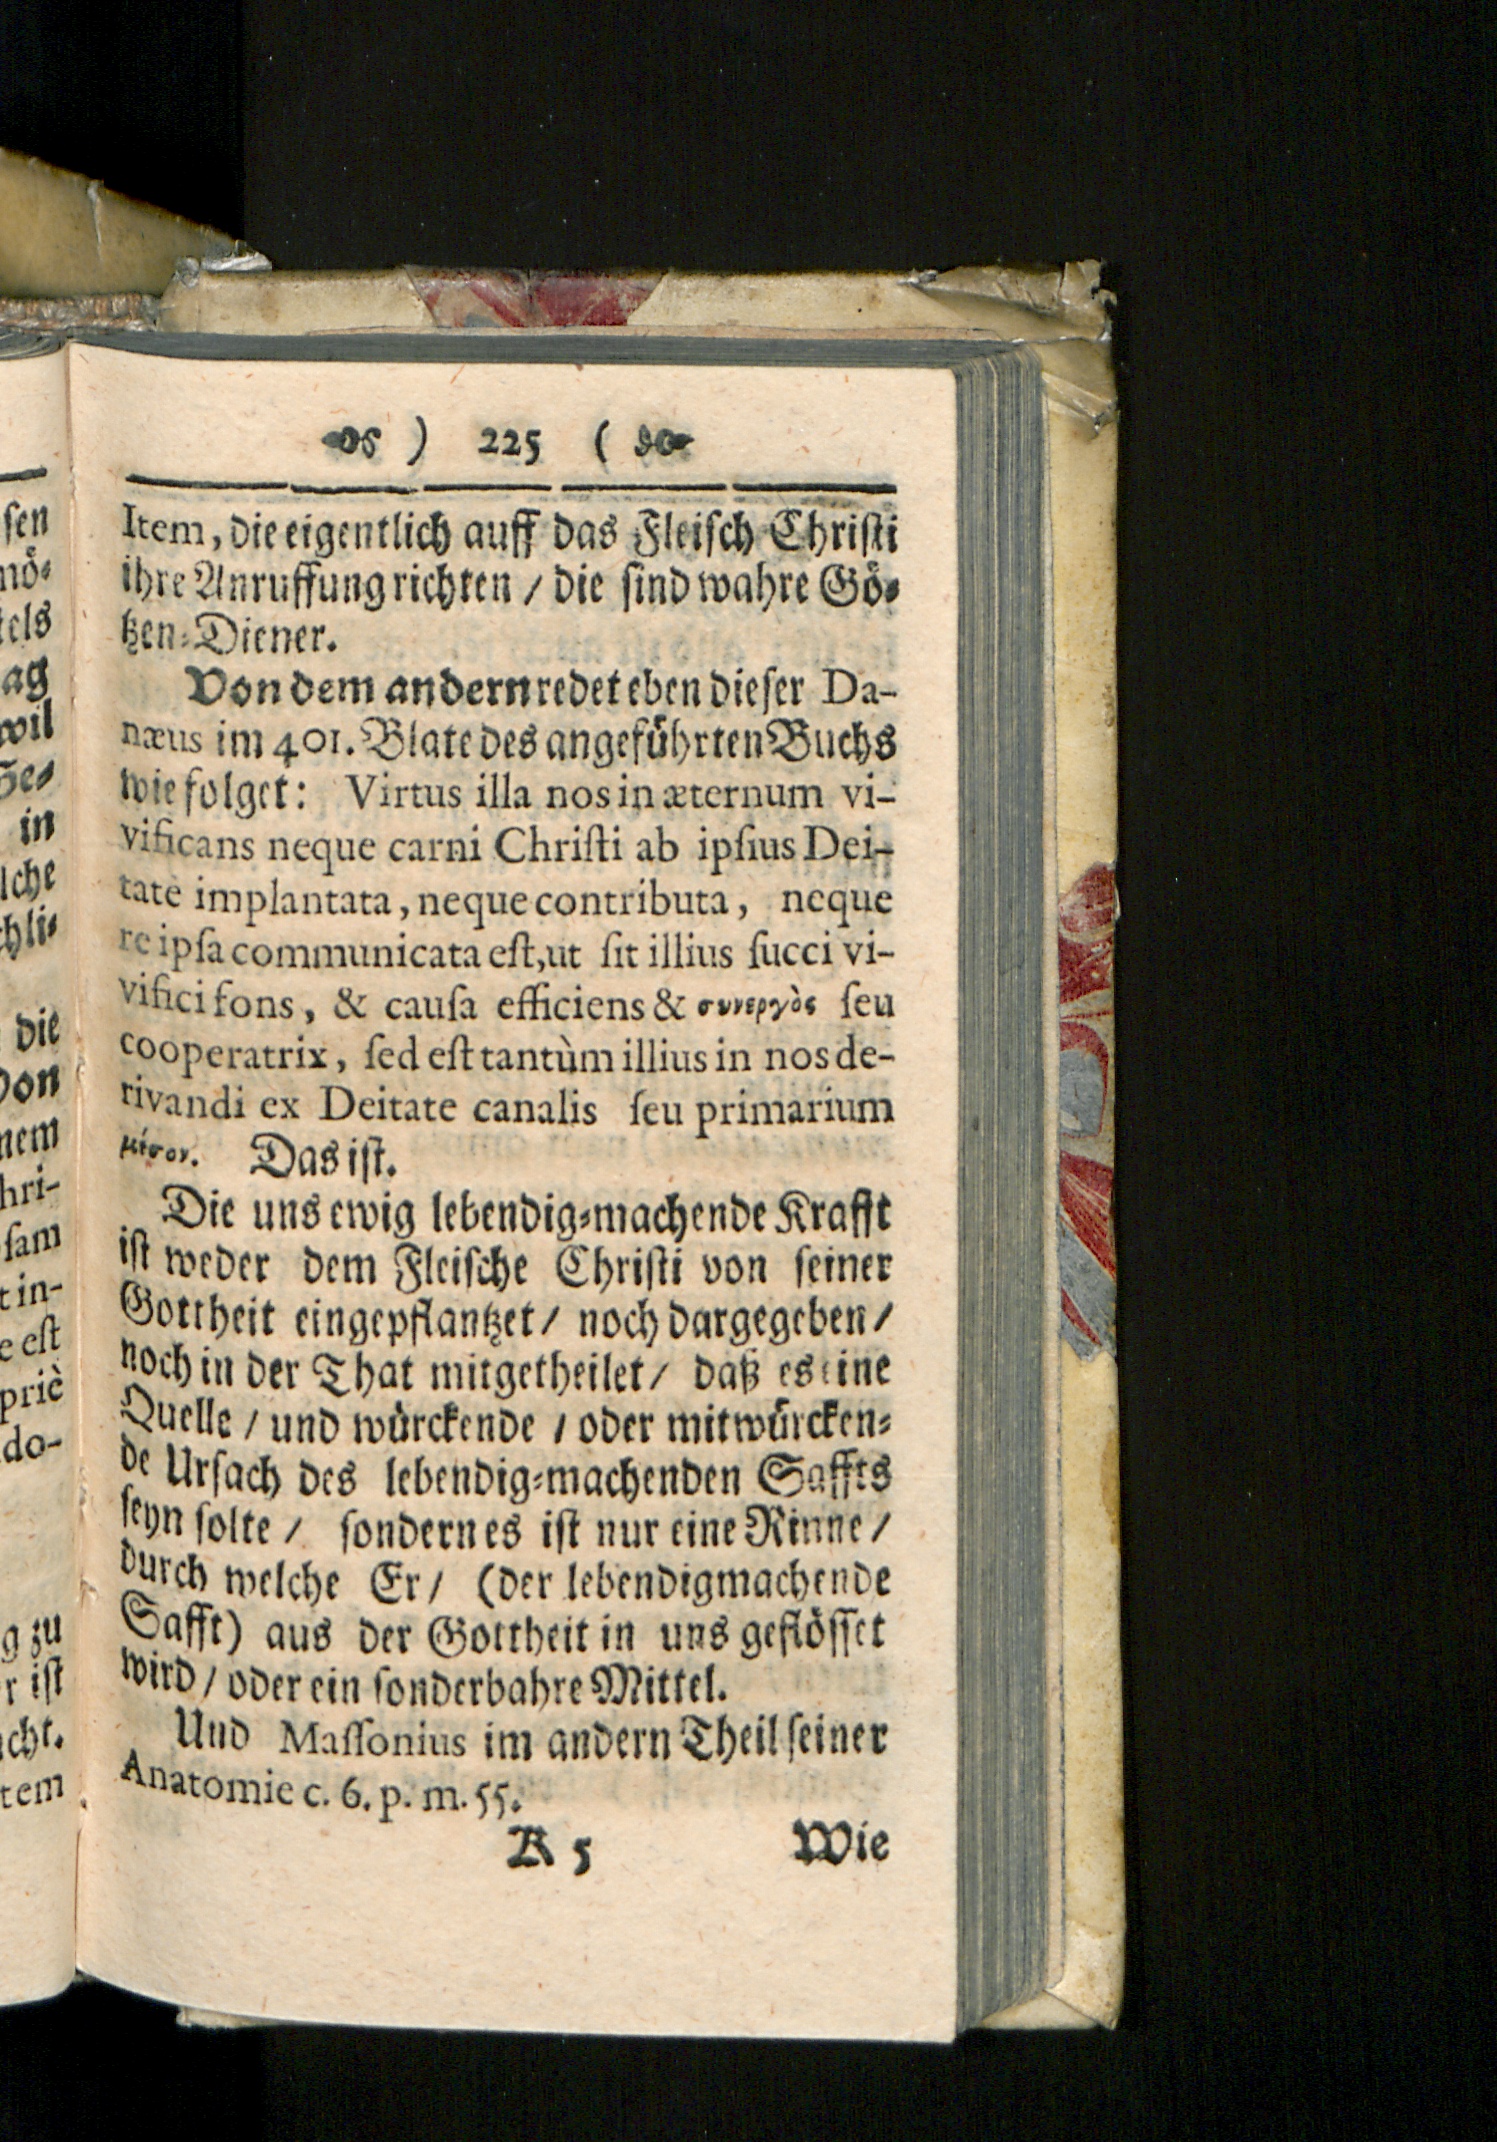 ) 225 (
Item, die eigentlich auff das Fleiſch Chriſti
ihre Anruffung richten / die ſind wahre Gö-
tzen-Diener.
Von dem andern redet eben dieſer Da-
næus im 401. Blate des angeführten Buchs
wie folget: Virtus illa nos in æternum vi-
vificans neque carni Chriſti ab ipſius Dei-
tate implantata, neque contributa, neque
re ipſa communicata eſt, ut ſit illius ſucci vi-
vifici fons, & cauſa efficiens & συνεργὸς ſeu
cooperatrix, ſed eſt tantùm illius in nos de-
rivandi ex Deitate canalis ſeu primarium
μέσον. Das iſt.
Die uns ewig lebendig-machende Krafft
iſt weder dem Fleiſche Chriſti von ſeiner
Gottheit eingepflantzet / noch dargegeben /
noch in der That mitgetheilet / daß es eine
Quelle / und würckende / oder mitwürcken-
de Urſach des lebendig-machenden Saffts
ſeyn ſolte / ſondern es iſt nur eine Rinne /
durch welche Er / (der lebendigmachende
Safft) aus der Gottheit in uns geflöſſet
wird / oder ein ſonderbahre Mittel.
Und Maſſonius im andern Theil ſeiner
Anatomie c. 6. p. m. 55.
K 5 Wie
ſen
nö-
tels
ag
wil
Ge-
in
lche
chli-
die
Von
nem
hri-
ſam
t in-
e eſt
priè
do-
g zu
r iſt
cht.
tem